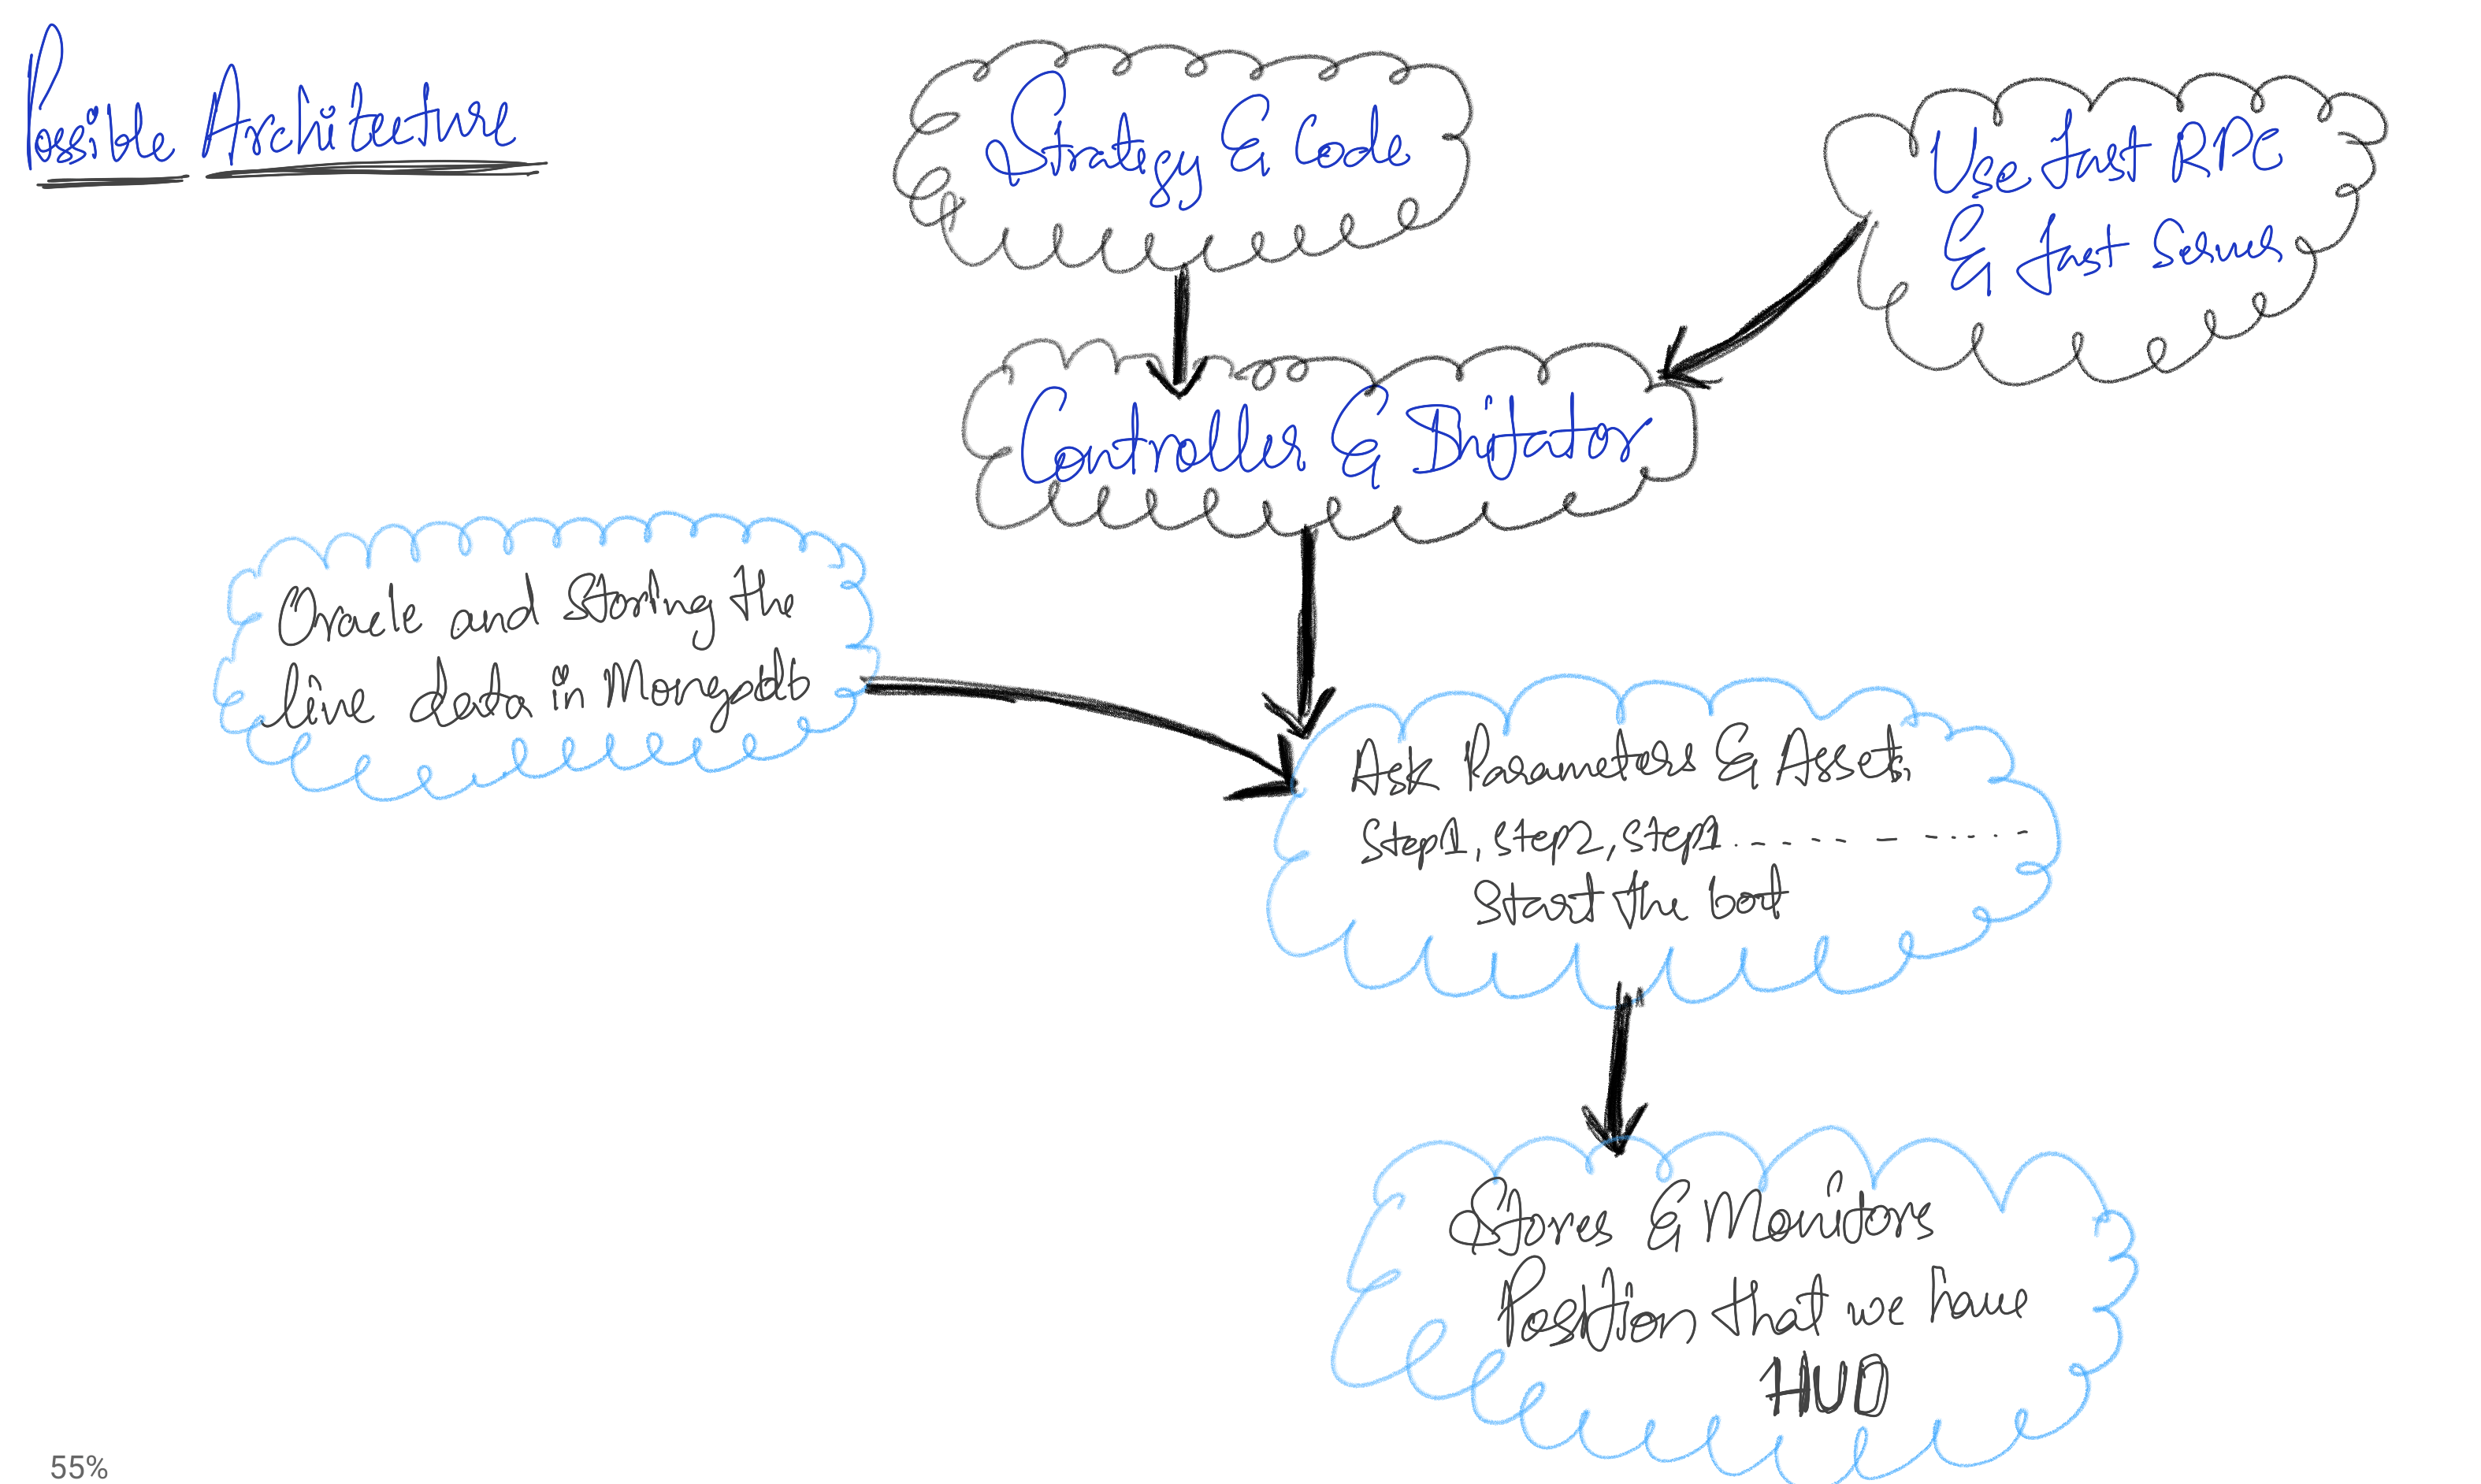 Possible Architecture
Strategy & Code
Use fast RPC
& fast Server
Controller & Initiator
Oracle and storing the
live data in Mongodb
Ask Parameters & Asset.
Step1, step2, step1 . - - - - - - . . . . -
Start the bot
Stores & Monitors
Position that we have
HUD
55%